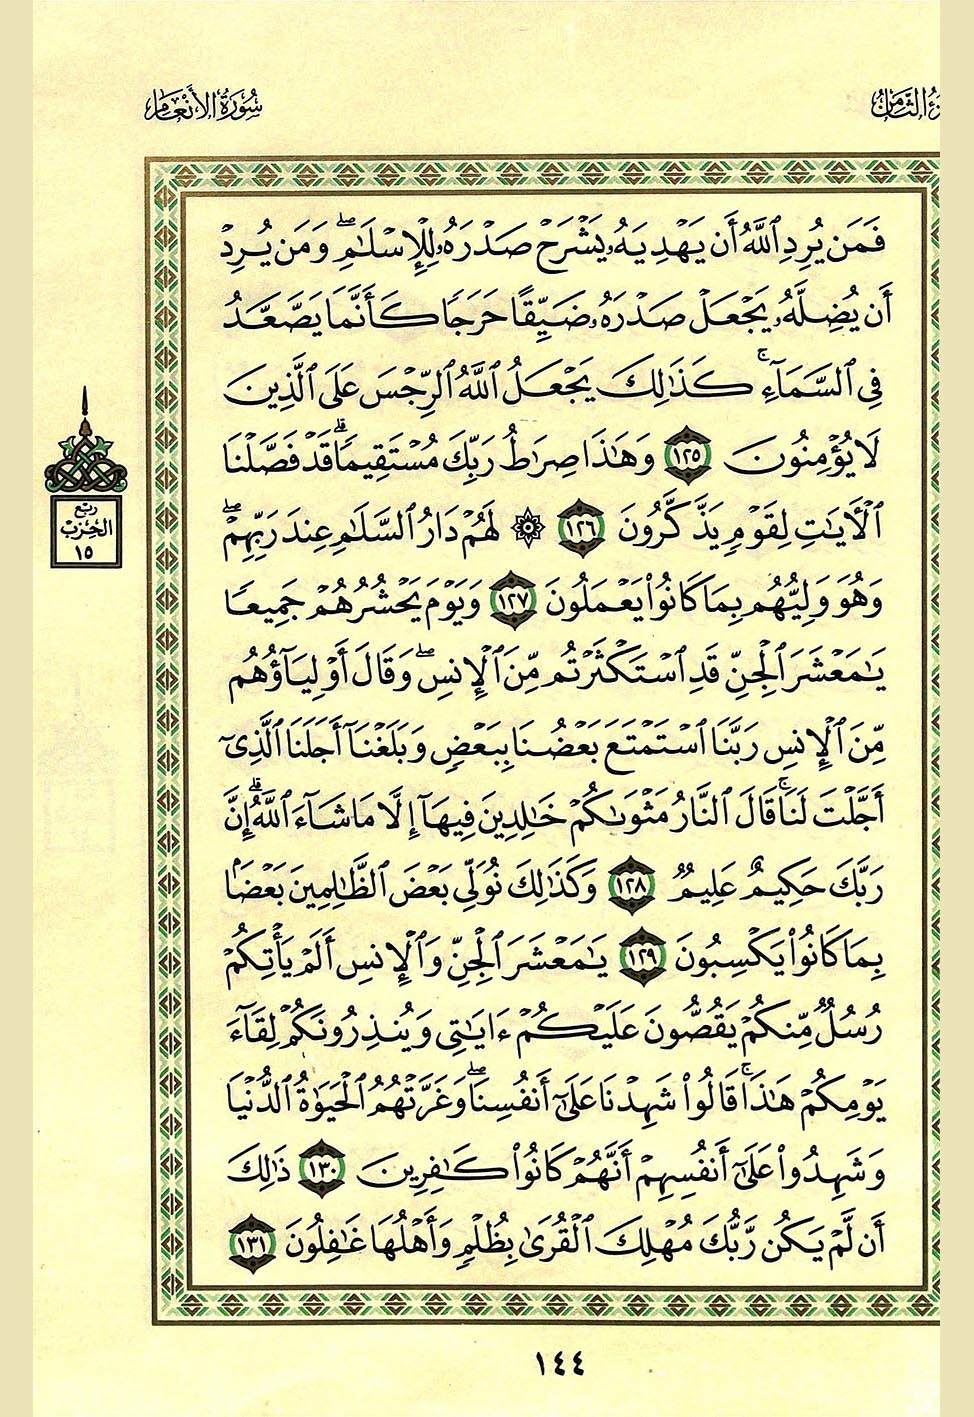 سُورَةُ الأَنْعَام
الثَّامِن
فَمَن يُرِدِ ٱللَّهُ أَن يَهْدِيَهُۥ يَشْرَحْ صَدْرَهُۥ لِلْإِسْلَٰمِ ۖ وَمَن يُرِدْ
أَن يُضِلَّهُۥ يَجْعَلْ صَدْرَهُۥ ضَيِّقًا حَرَجًا كَأَنَّمَا يَصَّعَّدُ
فِى ٱلسَّمَآءِ ۚ كَذَٰلِكَ يَجْعَلُ ٱللَّهُ ٱلرِّجْسَ عَلَى ٱلَّذِينَ
لَا يُؤْمِنُونَ ١٢٥ وَهَٰذَا صِرَٰطُ رَبِّكَ مُسْتَقِيمًا ۗ قَدْ فَصَّلْنَا
ٱلْءَايَٰتِ لِقَوْمٍ يَذَّكَّرُونَ ١٢٦ ۞ لَهُمْ دَارُ ٱلسَّلَٰمِ عِندَ رَبِّهِمْ ۖ
وَهُوَ وَلِيُّهُم بِمَا كَانُوا۟ يَعْمَلُونَ ١٢٧ وَيَوْمَ يَحْشُرُهُمْ جَمِيعًا
يَٰمَعْشَرَ ٱلْجِنِّ قَدِ ٱسْتَكْثَرْتُم مِّنَ ٱلْإِنسِ ۖ وَقَالَ أَوْلِيَآؤُهُم
مِّنَ ٱلْإِنسِ رَبَّنَا ٱسْتَمْتَعَ بَعْضُنَا بِبَعْضٍ وَبَلَغْنَآ أَجَلَنَا ٱلَّذِىٓ
أَجَّلْتَ لَنَا ۚ قَالَ ٱلنَّارُ مَثْوَىٰكُمْ خَٰلِدِينَ فِيهَآ إِلَّا مَا شَآءَ ٱللَّهُ ۗ إِنَّ
رَبَّكَ حَكِيمٌ عَلِيمٌ ١٢٨ وَكَذَٰلِكَ نُوَلِّى بَعْضَ ٱلظَّٰلِمِينَ بَعْضًۢا
بِمَا كَانُوا۟ يَكْسِبُونَ ١٢٩ يَٰمَعْشَرَ ٱلْجِنِّ وَٱلْإِنسِ أَلَمْ يَأْتِكُمْ
رُسُلٌ مِّنكُمْ يَقُصُّونَ عَلَيْكُمْ ءَايَٰتِى وَيُنذِرُونَكُمْ لِقَآءَ
يَوْمِكُمْ هَٰذَا ۚ قَالُوا۟ شَهِدْنَا عَلَىٰٓ أَنفُسِنَا ۖ وَغَرَّتْهُمُ ٱلْحَيَوٰةُ ٱلدُّنْيَا
وَشَهِدُوا۟ عَلَىٰٓ أَنفُسِهِمْ أَنَّهُمْ كَانُوا۟ كَٰفِرِينَ ١٣٠ ذَٰلِكَ
أَن لَّمْ يَكُن رَّبُّكَ مُهْلِكَ ٱلْقُرَىٰ بِظُلْمٍ وَأَهْلُهَا غَٰفِلُونَ ١٣١
ربع
الحزب
١٥
١٤٤